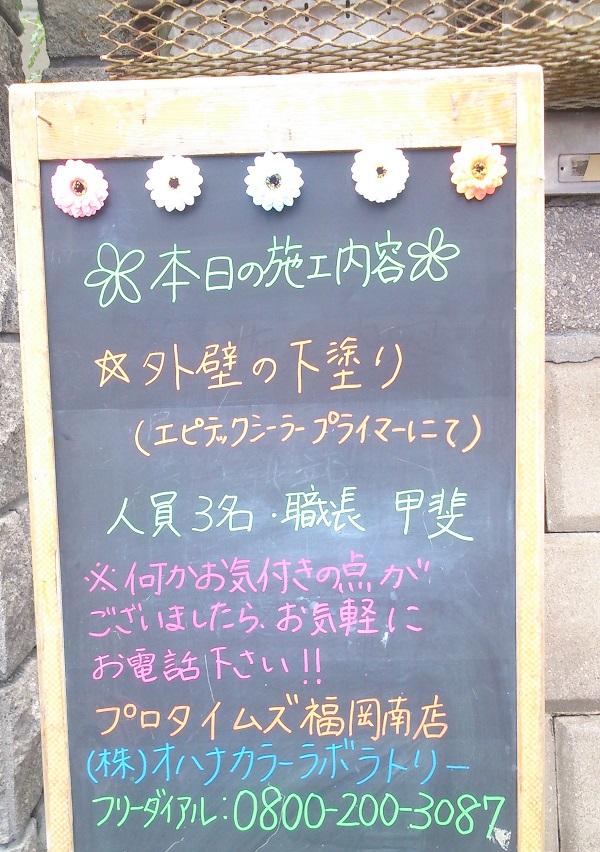 本日の施工内容
☆外壁の下塗り
(エピテックシーラープライマーにて)
人員3名・職長 甲斐
※何かお気付きの点が
ございましたら、お気軽に
お電話下さい!!
プロタイムズ福岡南店
(株)オハナカラーラボラトリー
フリーダイアル:0800-200-3087